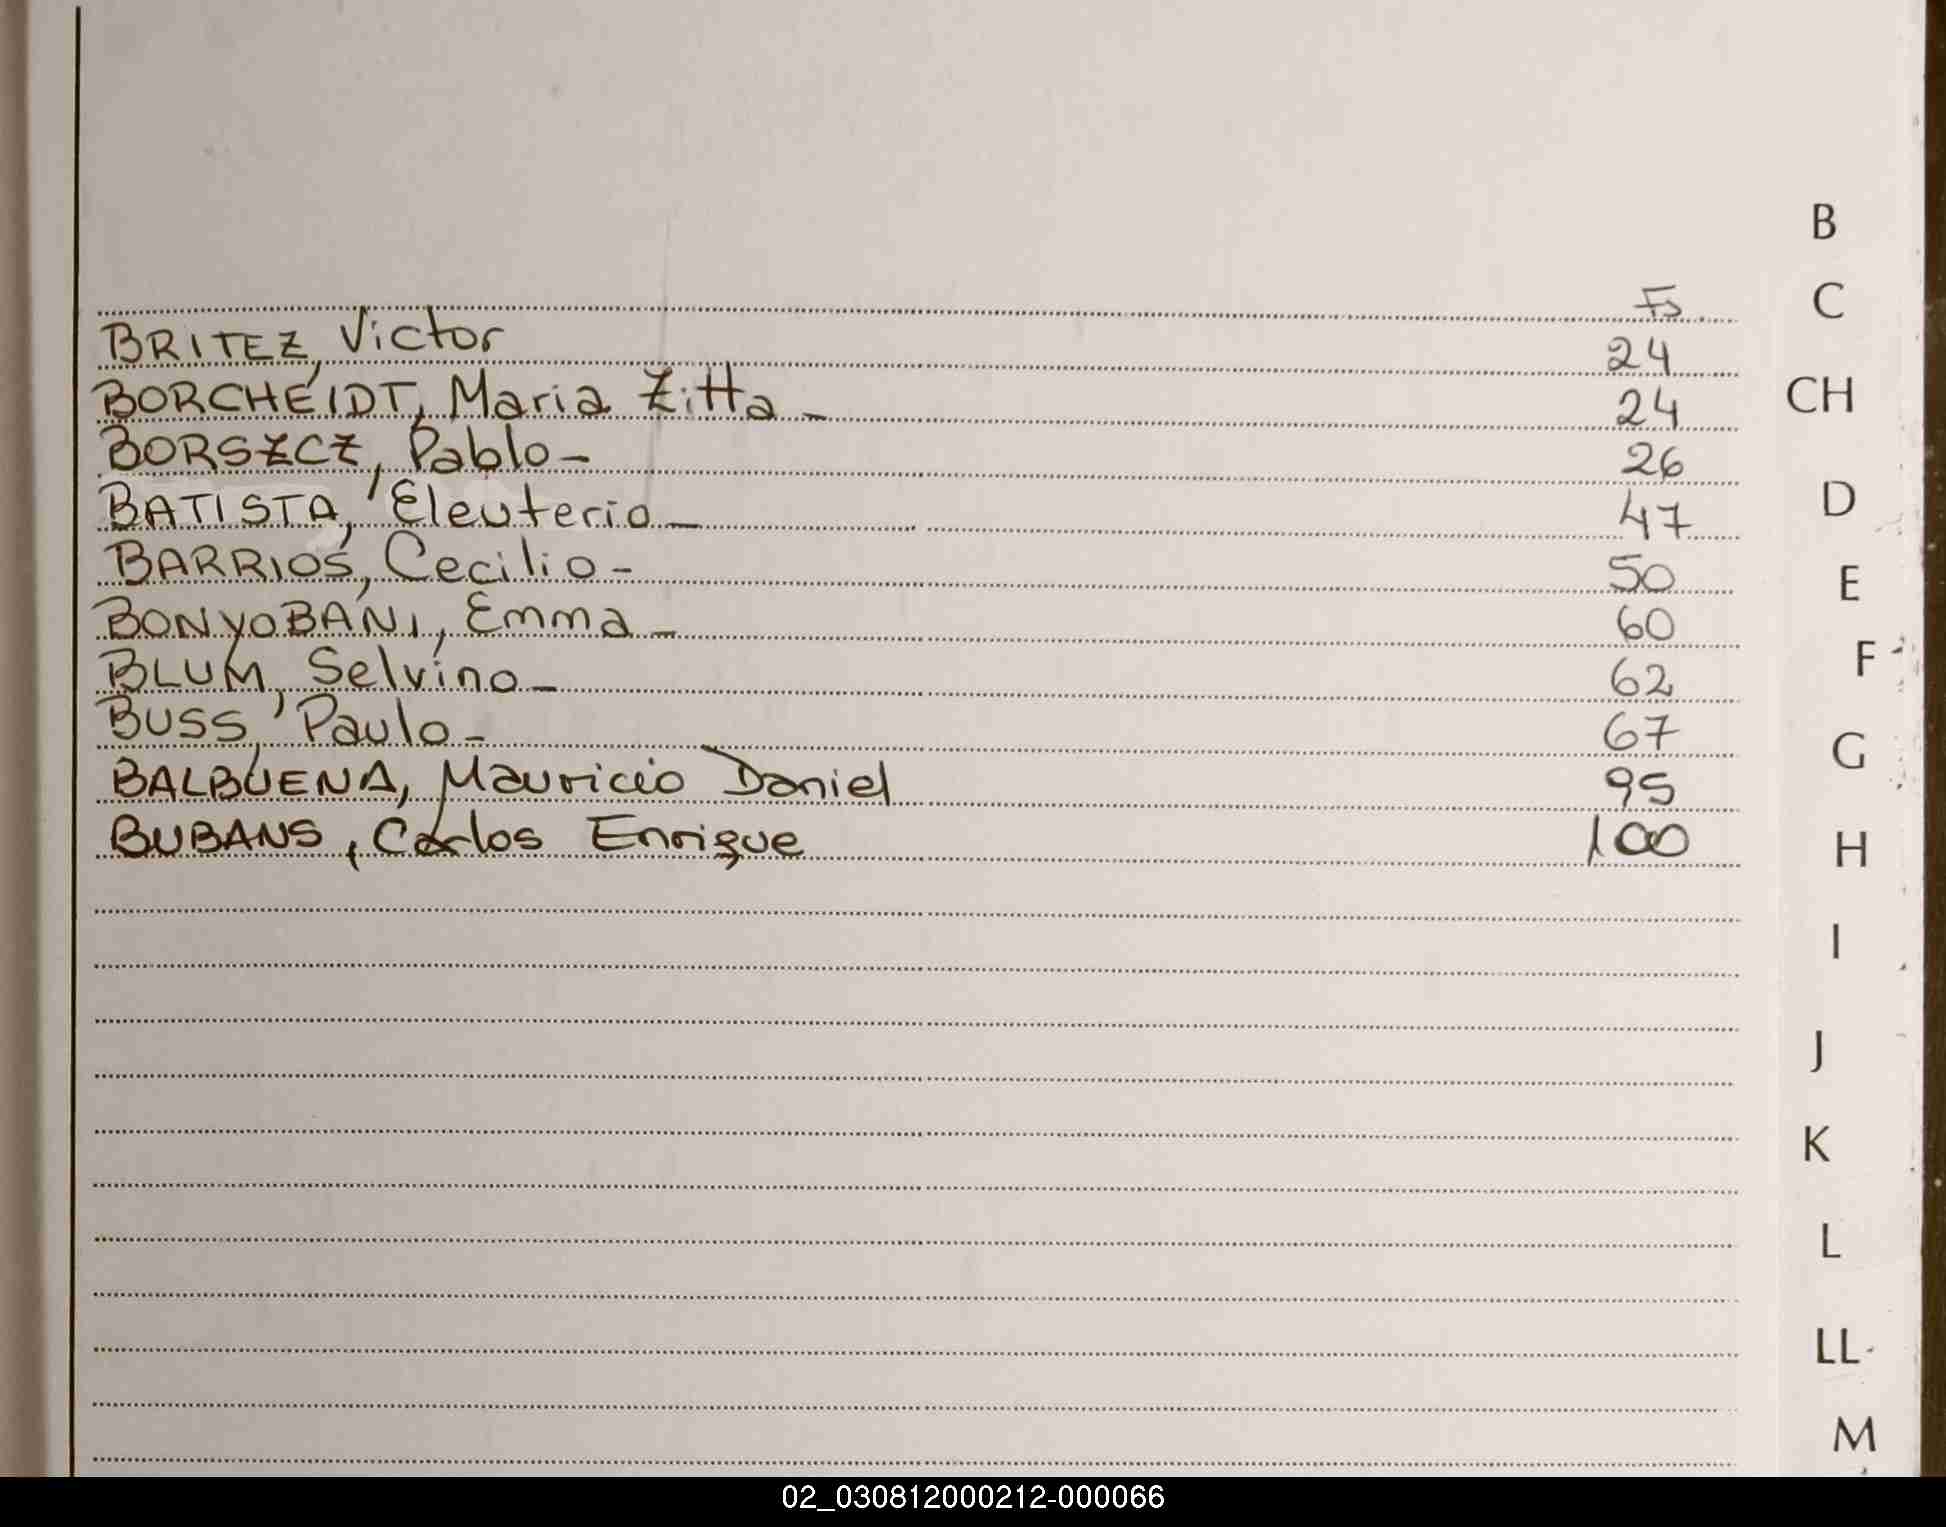 B
C
Fs.
BRITEZ, Victor 24
BORCHEIDT, Maria Zitta - 24
CH
BORSZCZ, Pablo - 26
BATISTA, Eleuterio - 47
D
BARRIOS, Cecilio - 50
E
BONYOBANI, Emma - 60
BLUM, Selvino - 62
F
BUSS, Paulo - 67
G
BALBUENA, Mauricio Daniel 95
BUBANS, Carlos Enrique 100
H
I
J
K
L
LL
M
02_030812000212-000066